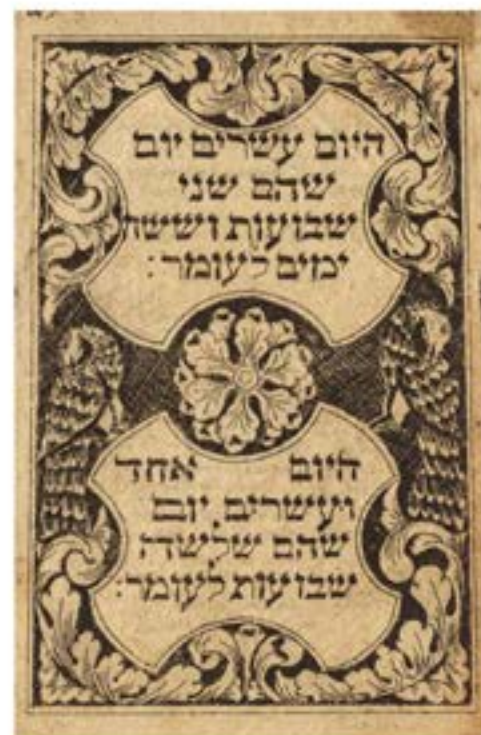 היום עשרים יום
שהם שני
שבועות וששה
ימים לעומר:
היום אחד
ועשרים יום
שהם שלשה
שבועות לעומר: